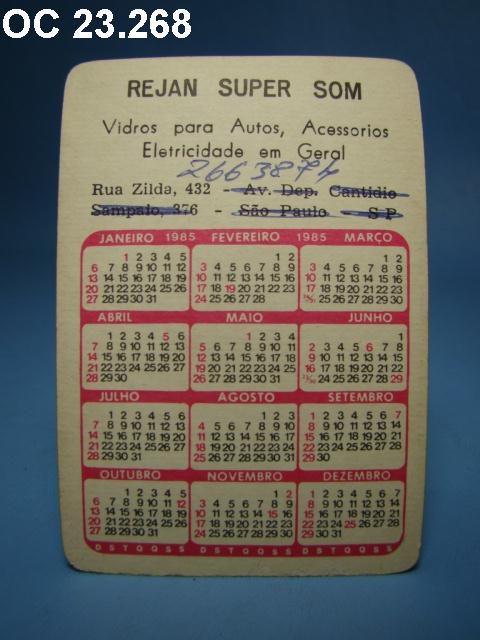 OC 23.268
REJAN SUPER SOM
Vidros para Autos, Acessorios
Eletricidade em Geral
2663874
Rua Zilda, 432 - Av. Dep. Cantidio
Sampaio, 376 - São Paulo - SP
JANEIRO 1985 FEVEREIRO 1985 MARÇO
1 2 3 4 5 1 2 1 2
6 7 8 9 10 11 12 3 4 5 6 7 8 9 3 4 5 6 7 8 9
13 14 15 16 17 18 19 10 11 12 13 14 15 16 10 11 12 13 14 15 16
20 21 22 23 24 25 26 17 18 19 20 21 22 23 17 18 19 20 21 22 23
27 28 29 30 31 24 25 26 27 28 24/31 25 26 27 28 29 30
ABRIL MAIO JUNHO
1 2 3 4 5 6 1 2 3 4 1
7 8 9 10 11 12 13 5 6 7 8 9 10 11 2 3 4 5 6 7 8
14 15 16 17 18 19 20 12 13 14 15 16 17 18 9 10 11 12 13 14 15
21 22 23 24 25 26 27 19 20 21 22 23 24 25 16 17 18 19 20 21 22
28 29 30 26 27 28 29 30 31 23/30 24 25 26 27 28 29
JULHO AGOSTO SETEMBRO
1 2 3 4 5 6 1 2 3 1 2 3 4 5 6 7
7 8 9 10 11 12 13 4 5 6 7 8 9 10 8 9 10 11 12 13 14
14 15 16 17 18 19 20 11 12 13 14 15 16 17 15 16 17 18 19 20 21
21 22 23 24 25 26 27 18 19 20 21 22 23 24 22 23 24 25 26 27 28
28 29 30 31 25 26 27 28 29 30 31 29 30
OUTUBRO NOVEMBRO DEZEMBRO
1 2 3 4 5 1 2 1 2 3 4 5 6 7
6 7 8 9 10 11 12 3 4 5 6 7 8 9 8 9 10 11 12 13 14
13 14 15 16 17 18 19 10 11 12 13 14 15 16 15 16 17 18 19 20 21
20 21 22 23 24 25 26 17 18 19 20 21 22 23 22 23 24 25 26 27 28
27 28 29 30 31 24 25 26 27 28 29 30 29 30 31
D S T Q Q S S D S T Q Q S S D S T Q Q S S